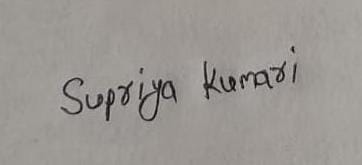 Supriya Kumari